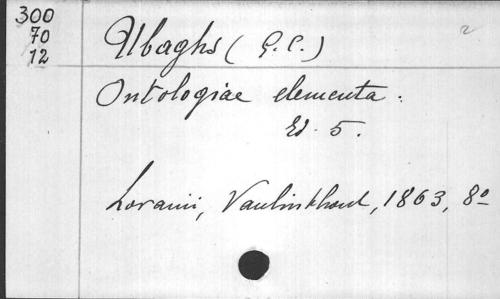 300
70
12
Ubaghs (G. C.)
2
Ontologiae elementa.
Ed. 5.
Lovanii, Vanlinthout, 1863, 8º